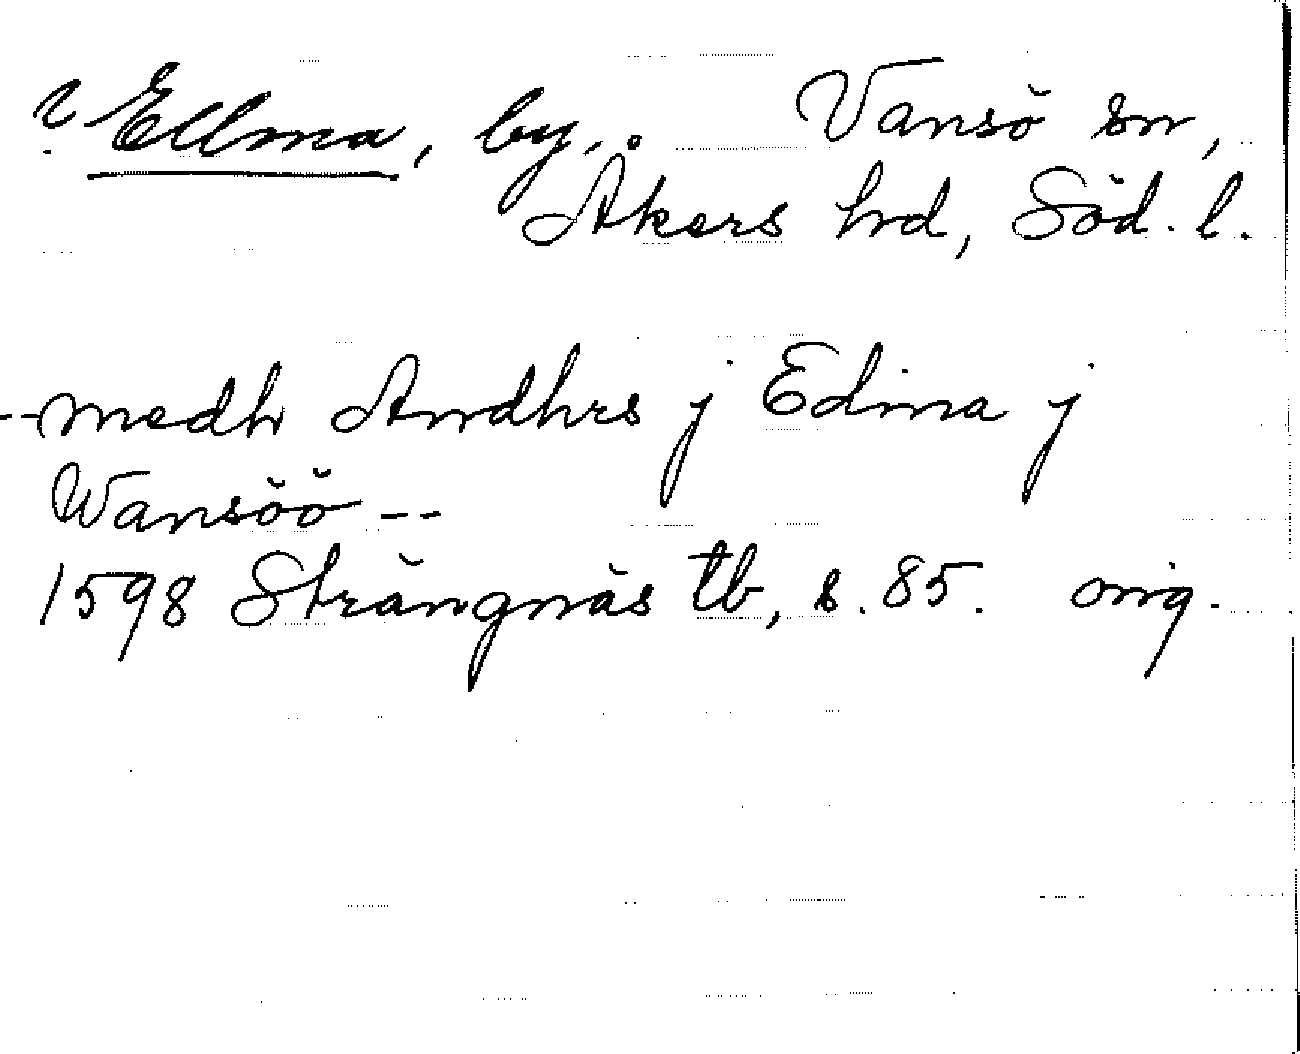 ? Ellma, by, Vansö sn,
Åkers hrd, Söd. l.
--medh Andhrs j Edma j
Wansöö --
1598 Strängnäs tb, s. 85. orig.